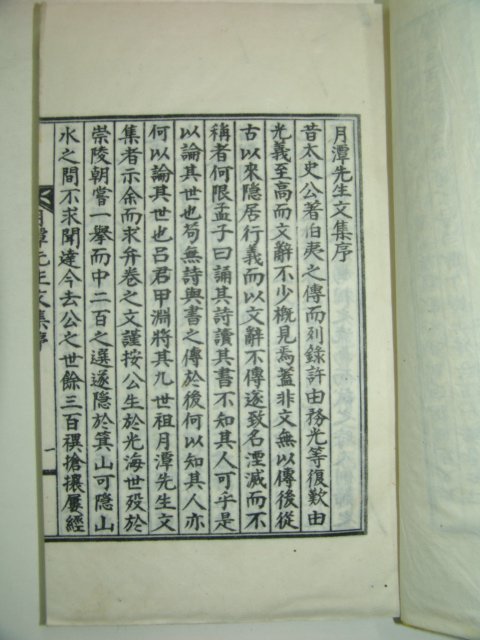 月潭先生文集序
昔太史公著伯夷之傳而列錄許由務光等復歎由
光義至高而文辭不少概見焉蓋非文無以傳後從
古以來隱居行義而以文辭不傳遂致名湮滅而不
稱者何限孟子曰誦其詩讀其書不知其人可乎是
以論其世也苟無詩與書之傳於後何以知其人亦
何以論其世也呂君甲淵將其九世祖月潭先生文
集者示余而求弁卷之文謹按公生於光海世歿於
崇陵朝嘗一擧而中二百之選遂隱於箕山可隱山
水之間不求聞達今去公之世餘三百禩搶攘屢經
月潭先生文集序
一